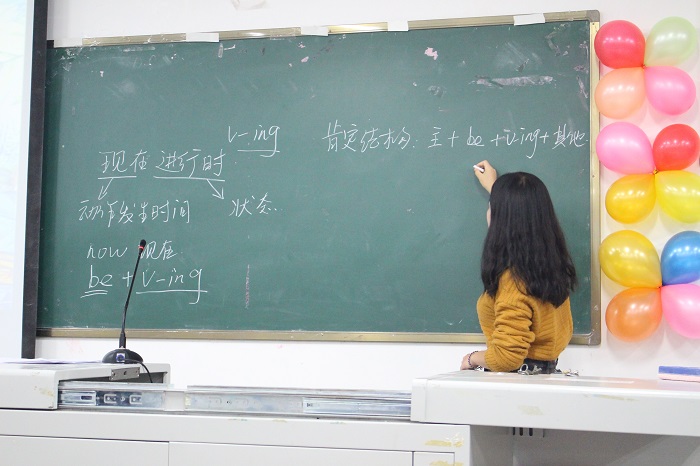 v-ing
现在进行时
动作发生时间 状态
now 现在
be + v-ing
肯定结构: 主 + be + v-ing + 其他